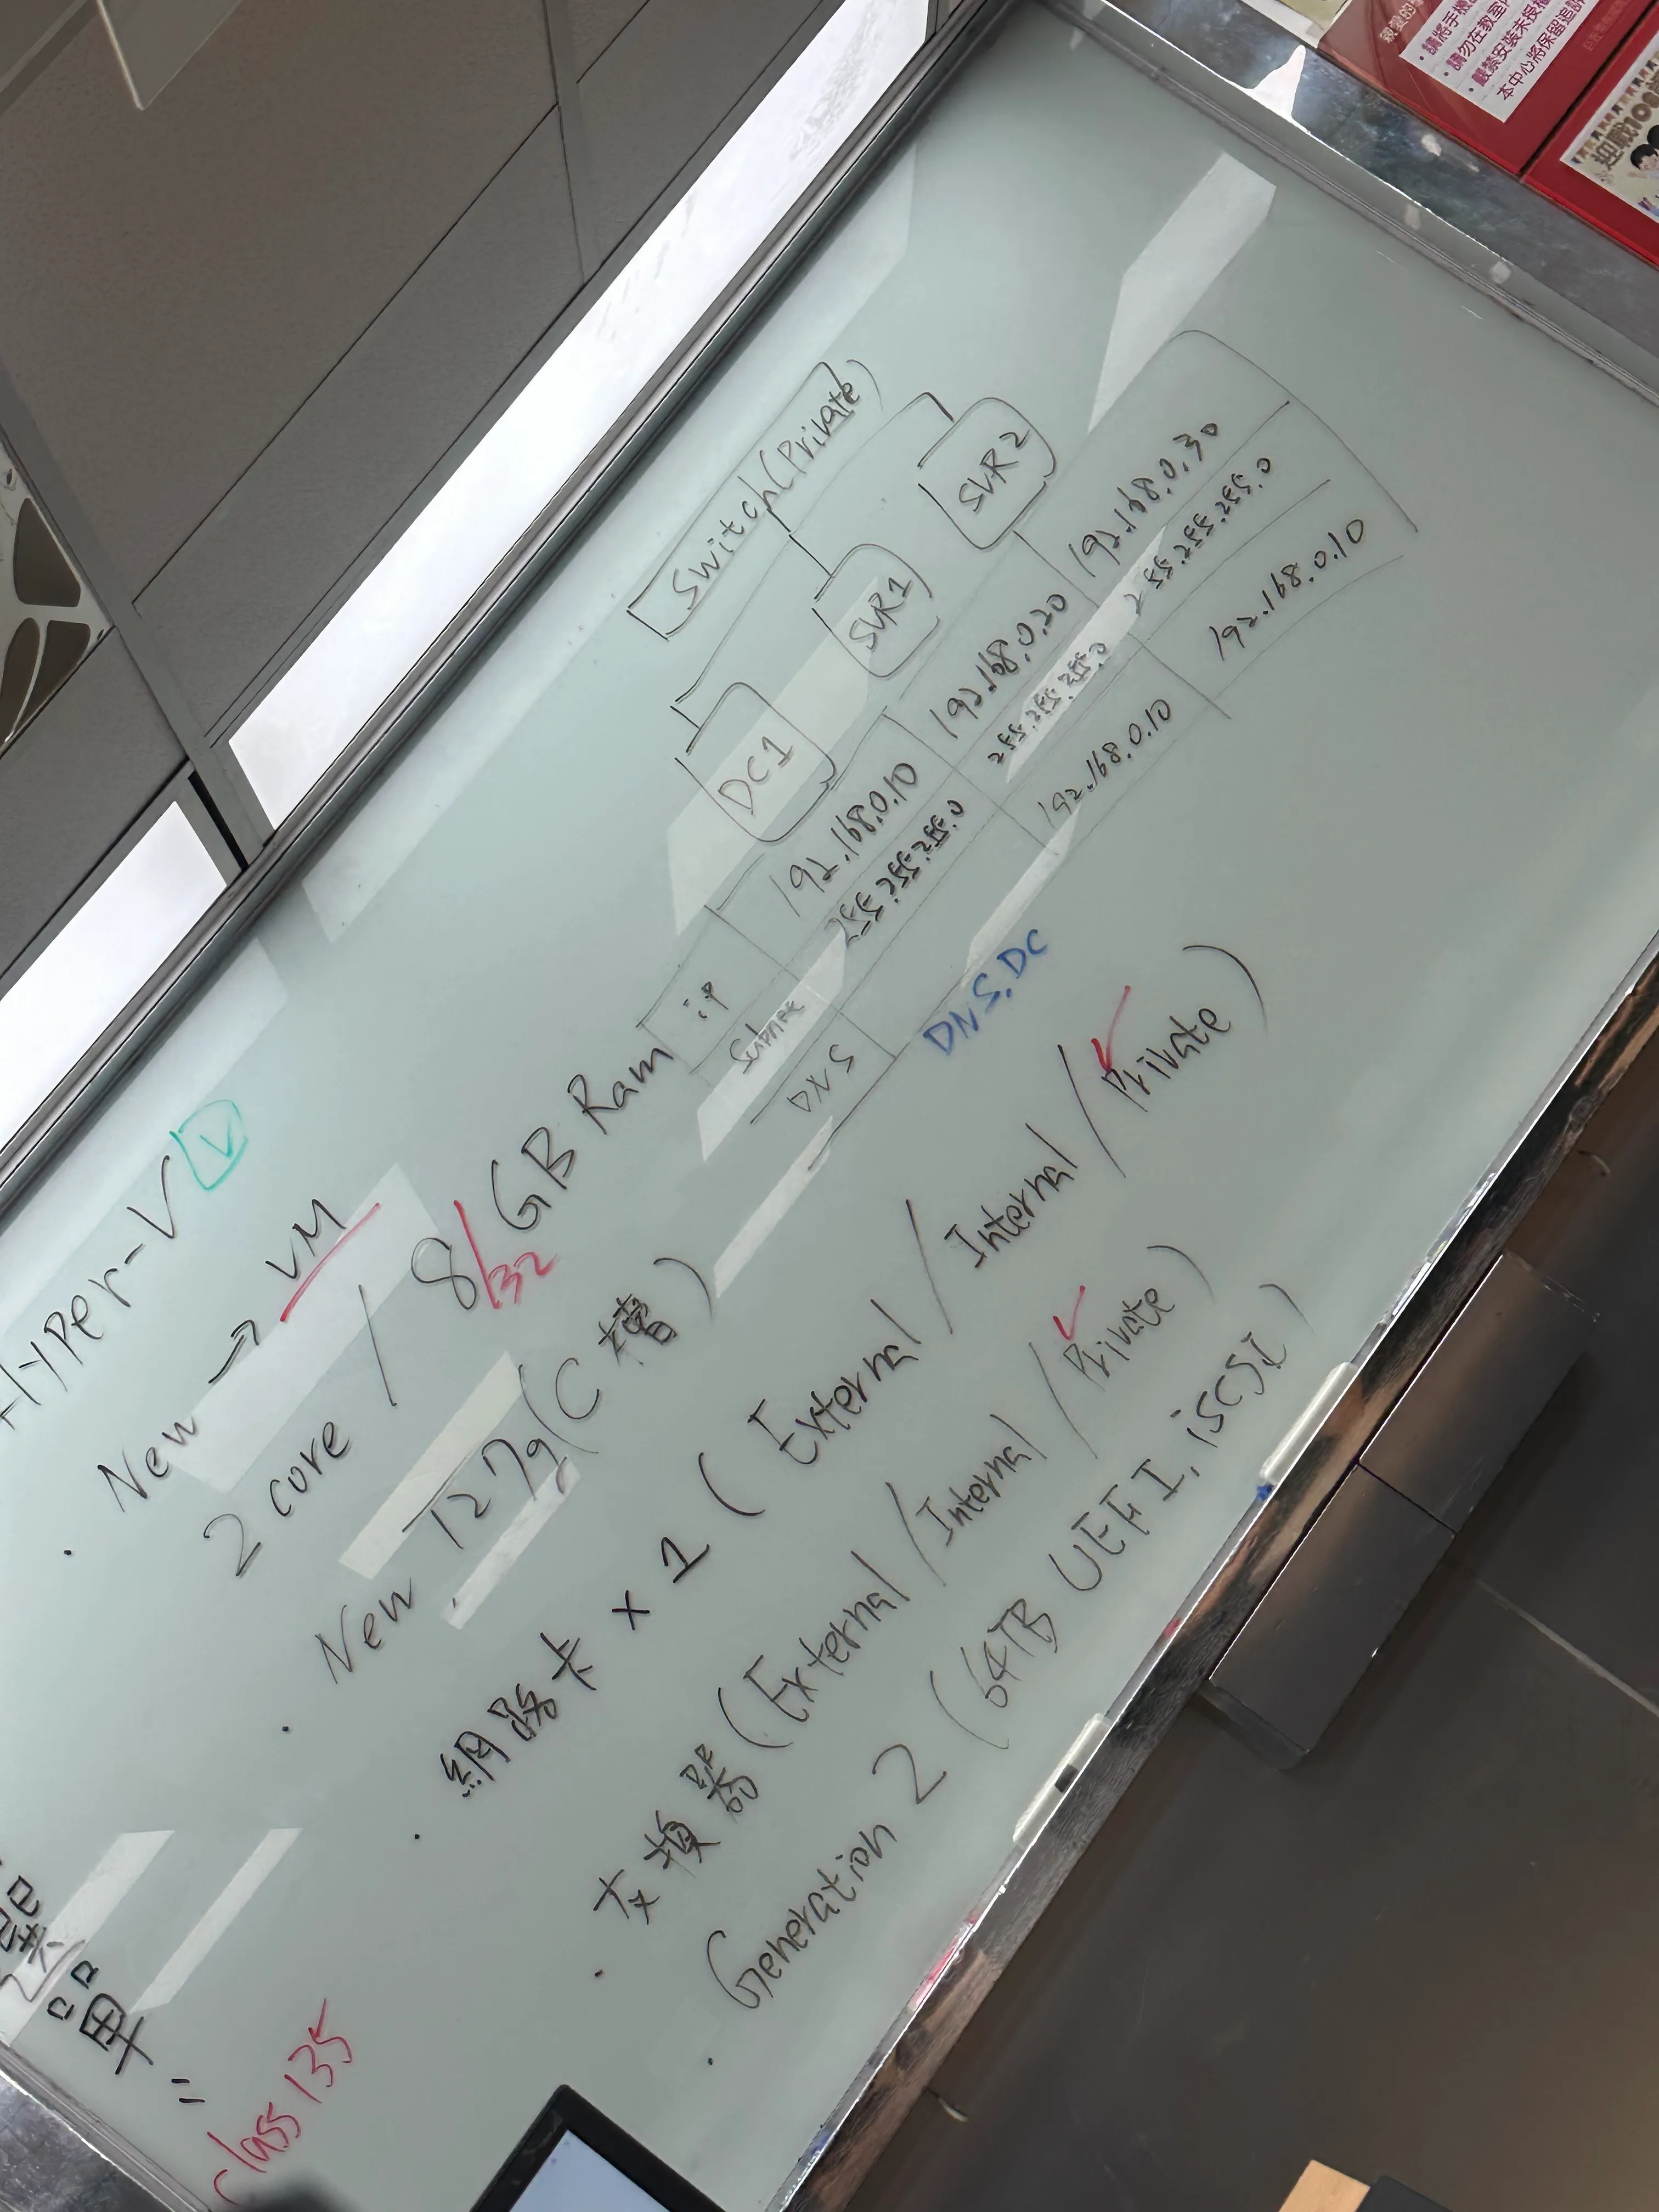 Hyper-V V
· New → VM
2 core / 8/32 GB Ram
· New 127g (C槽)
· 網路卡 x 1 ( External / Internal / Private )
· 交換器 ( External / Internal / Private )
· Generation 2 ( 64TB UEFI, iSCSI )
單"
class 135
Switch (Private)
DC1 SVR1 SVR2
ip 192.168.0.10 192.168.0.20 192.168.0.30
255.255.255.0 255.255.255.0 255.255.255.0
DNS 192.168.0.10 192.168.0.10
DNS, DC
· 請勿在教室